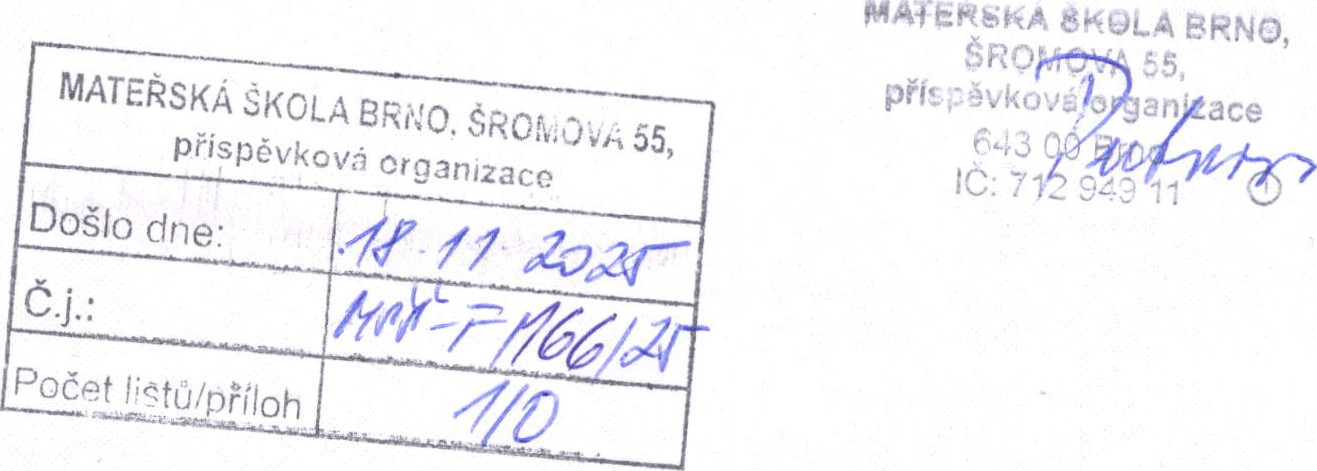 MATEŘSKÁ ŠKOLA BRNO, ŠROMOVA 55,
příspěvková organizace
Došlo dne: 18. 11. 2025
Č.j.: /25
Počet listů/příloh 1/0
MATEŘSKÁ ŠKOLA BRNO,
ŠROMOVA 55,
příspěvková organizace
643 00 Brno
IČ: 712 949 11 1